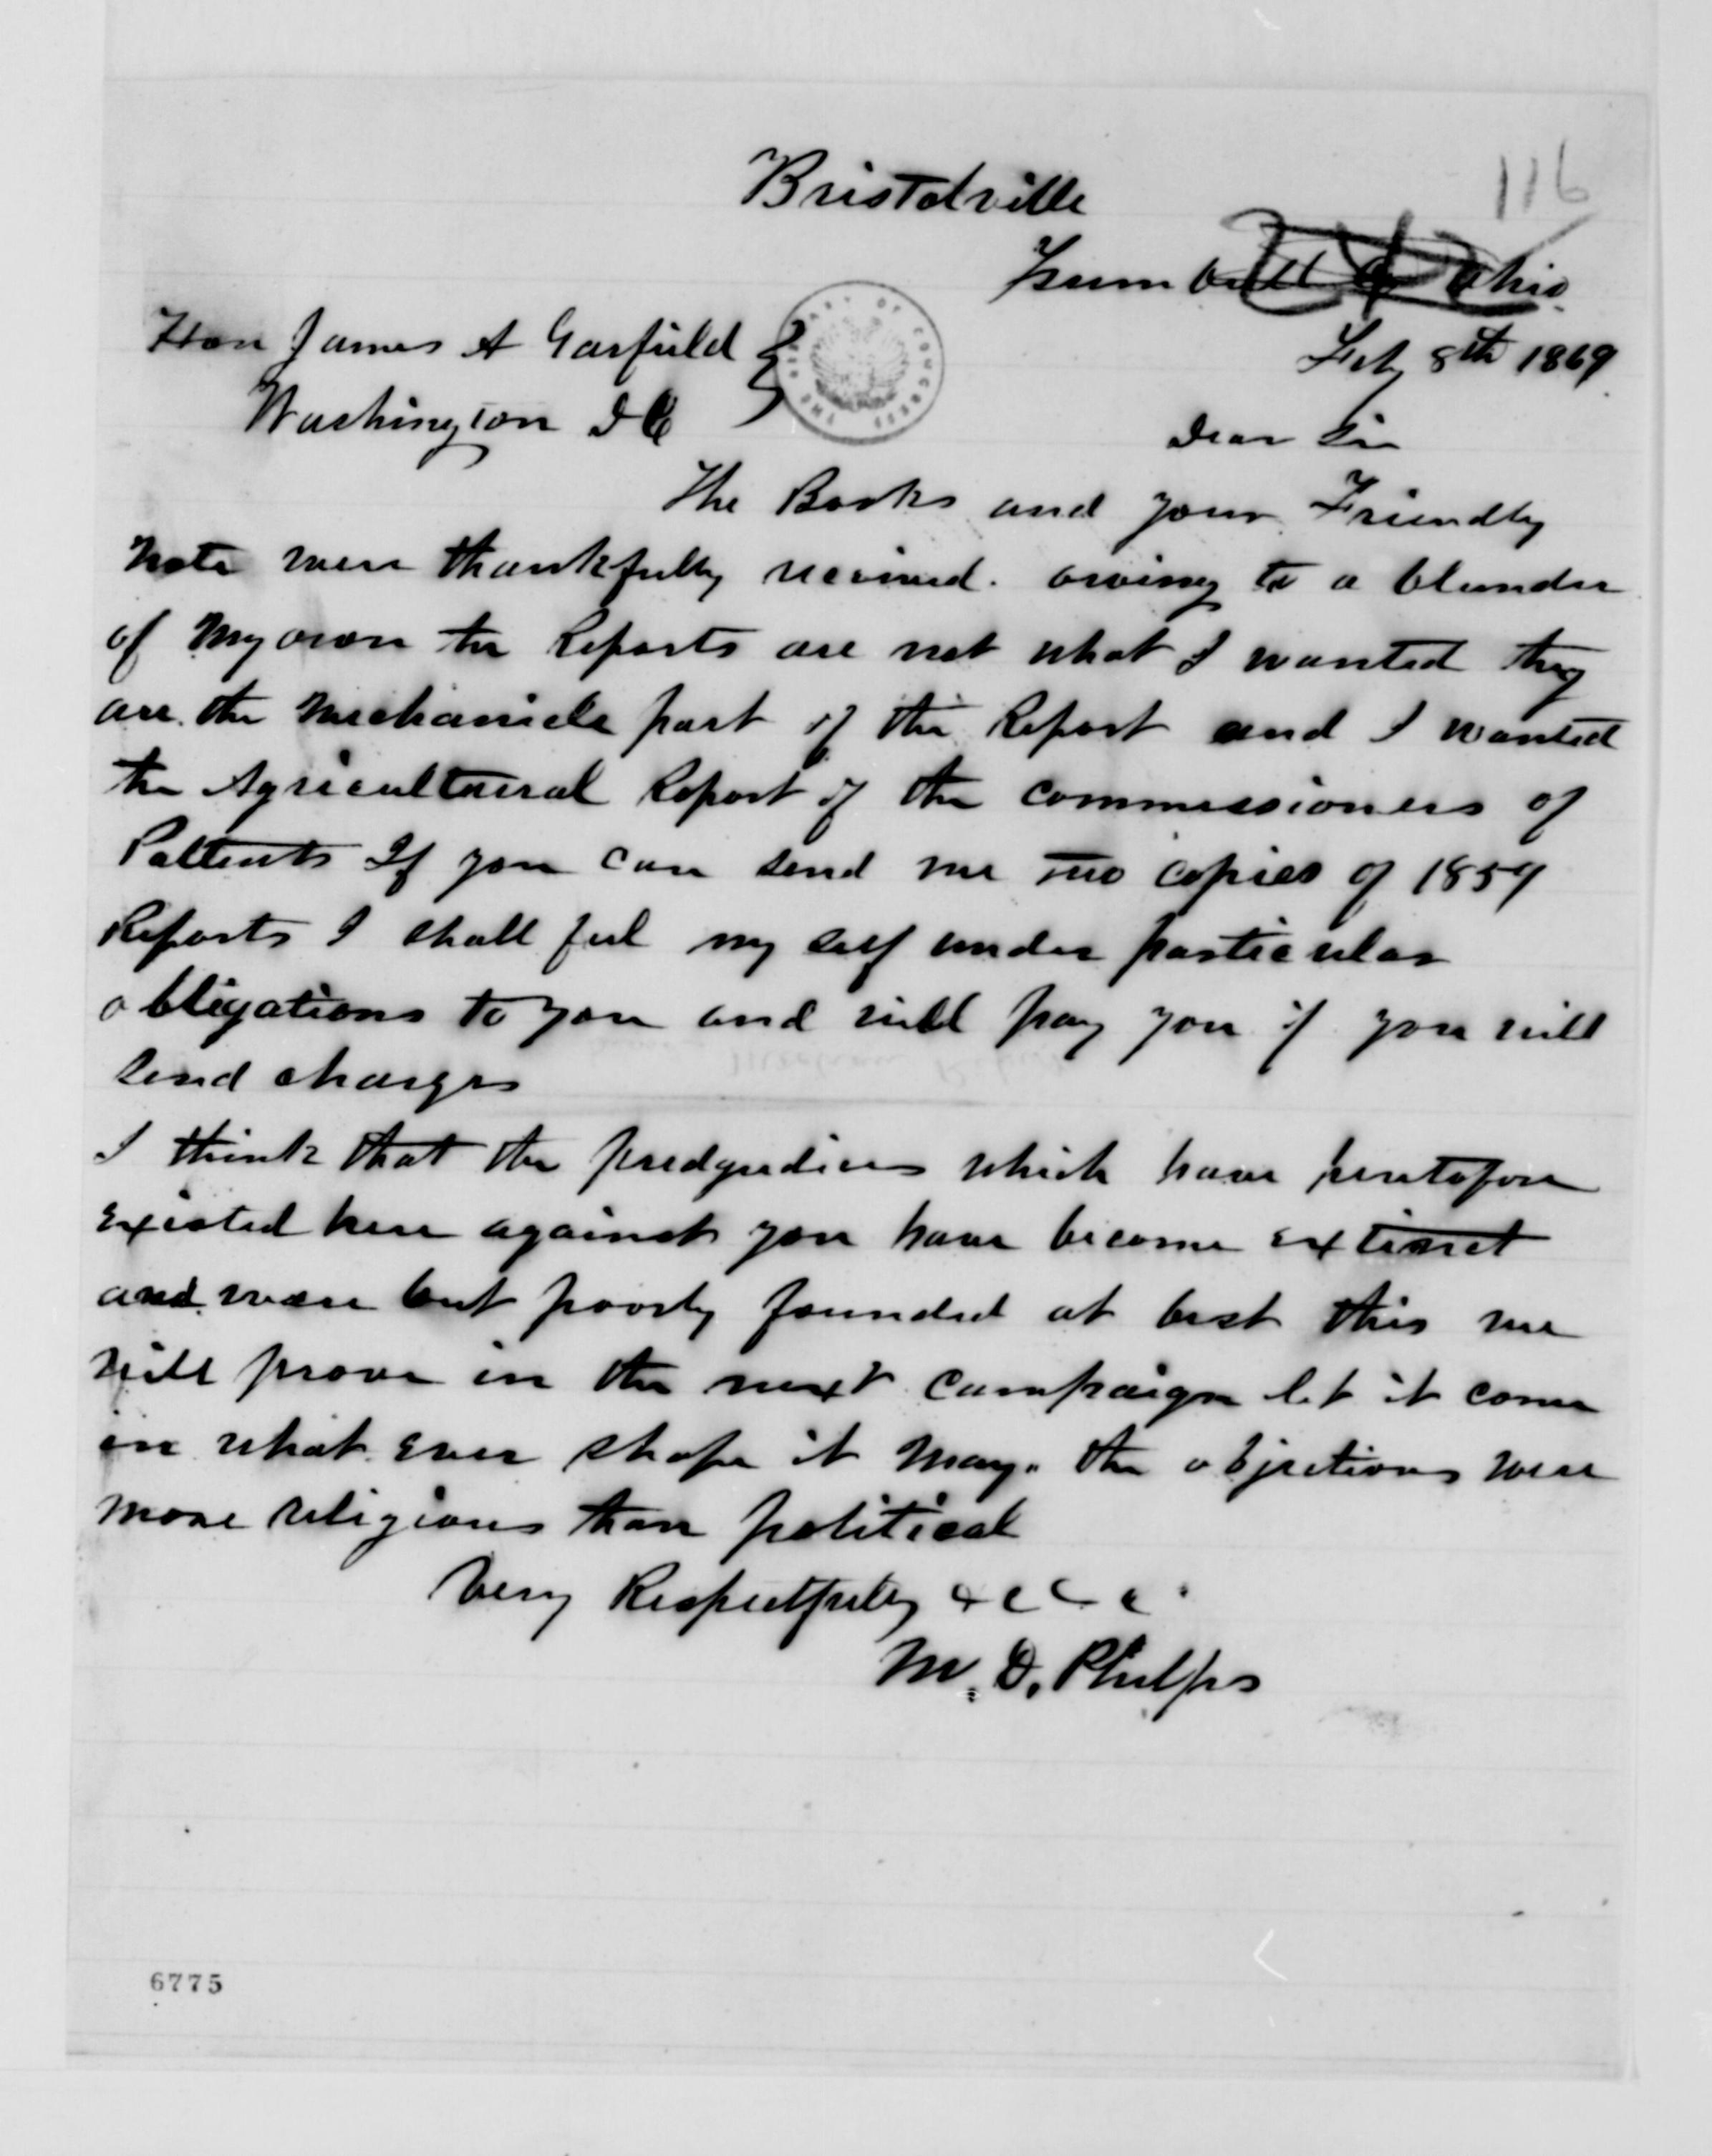 116
Bristolville
Trumbull Co Ohio
Hon James A Garfield
Feb 8th 1869
Washington DC
Dear Sir
The Books and your Friendly
Note were thankfully received. owing to a blunder
of My own the Reports are not what I wanted they
are the Mechanicle part of the Report and I wanted
the Agricultural Report of the commissioners of
Pattents If you can send me two copies of 1859
Reports I shall feel my self under particular
obligations to you and will pay you if you will
send charges
I think that the predgudices which have heretofore
existed here against you have become extinct
and were but poorly founded at best this we
will prove in the next campaign let it come
in what ever shape it May. the objections were
more religious than political
Very Respectfully &c c c
M. D. Phelps
6775